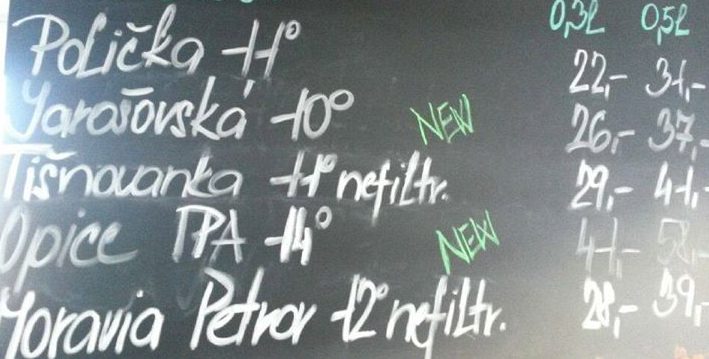 0,3l 0,5l
Polička 11° 22,- 31,-
Jarošovská 10° NEW 26,- 37,-
Tišnovanka 11° nefiltr. 29,- 41,-
Opice IPA 14° NEW 41,-
Moravia Petrov 12° nefiltr. 28,- 39,-